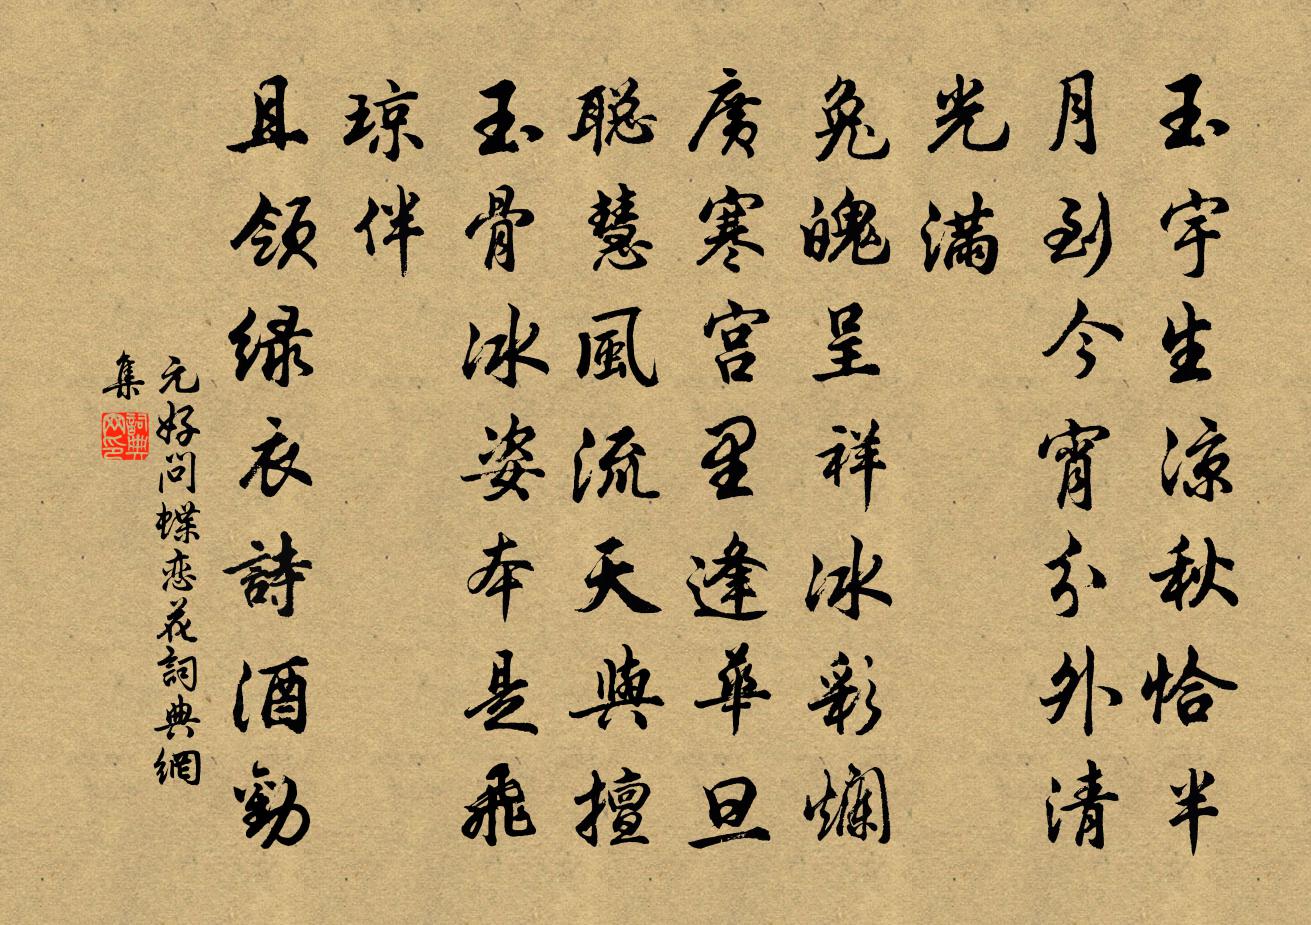 玉宇生凉秋恰半
月到今宵分外清
光满
兔魄呈祥冰彩爛
廣寒宫里逢華旦
聪慧風流天與擅
玉骨冰姿本是飛
琼伴
且领绿衣詩酒勸
元好问蝶恋花詞典網
集
詞典网印